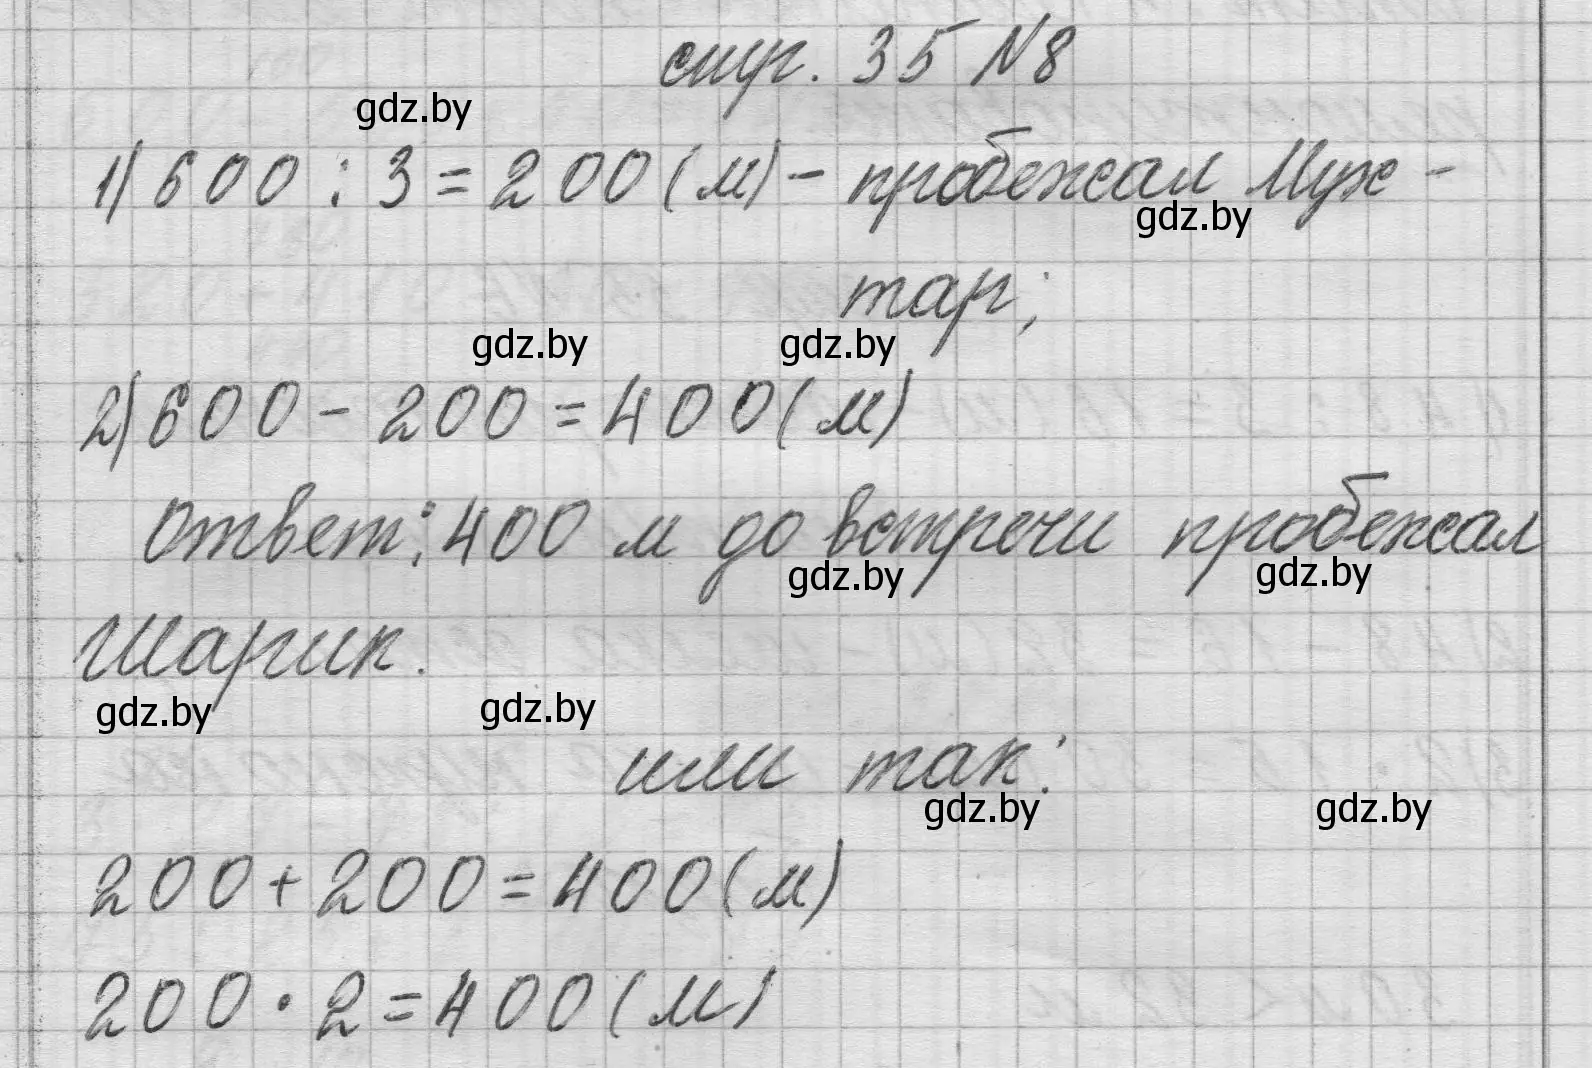 стр. 35 №8
gdz.by
1) 600 : 3 = 200 (м) - пробежал Мух -
gdz.by
тар;
gdz.by gdz.by
2) 600 - 200 = 400 (м)
Ответ: 400 м до встречи пробежал
gdz.by gdz.by
Шарик.
gdz.by gdz.by
или так:
gdz.by gdz.by
200 + 200 = 400 (м)
200 · 2 = 400 (м)